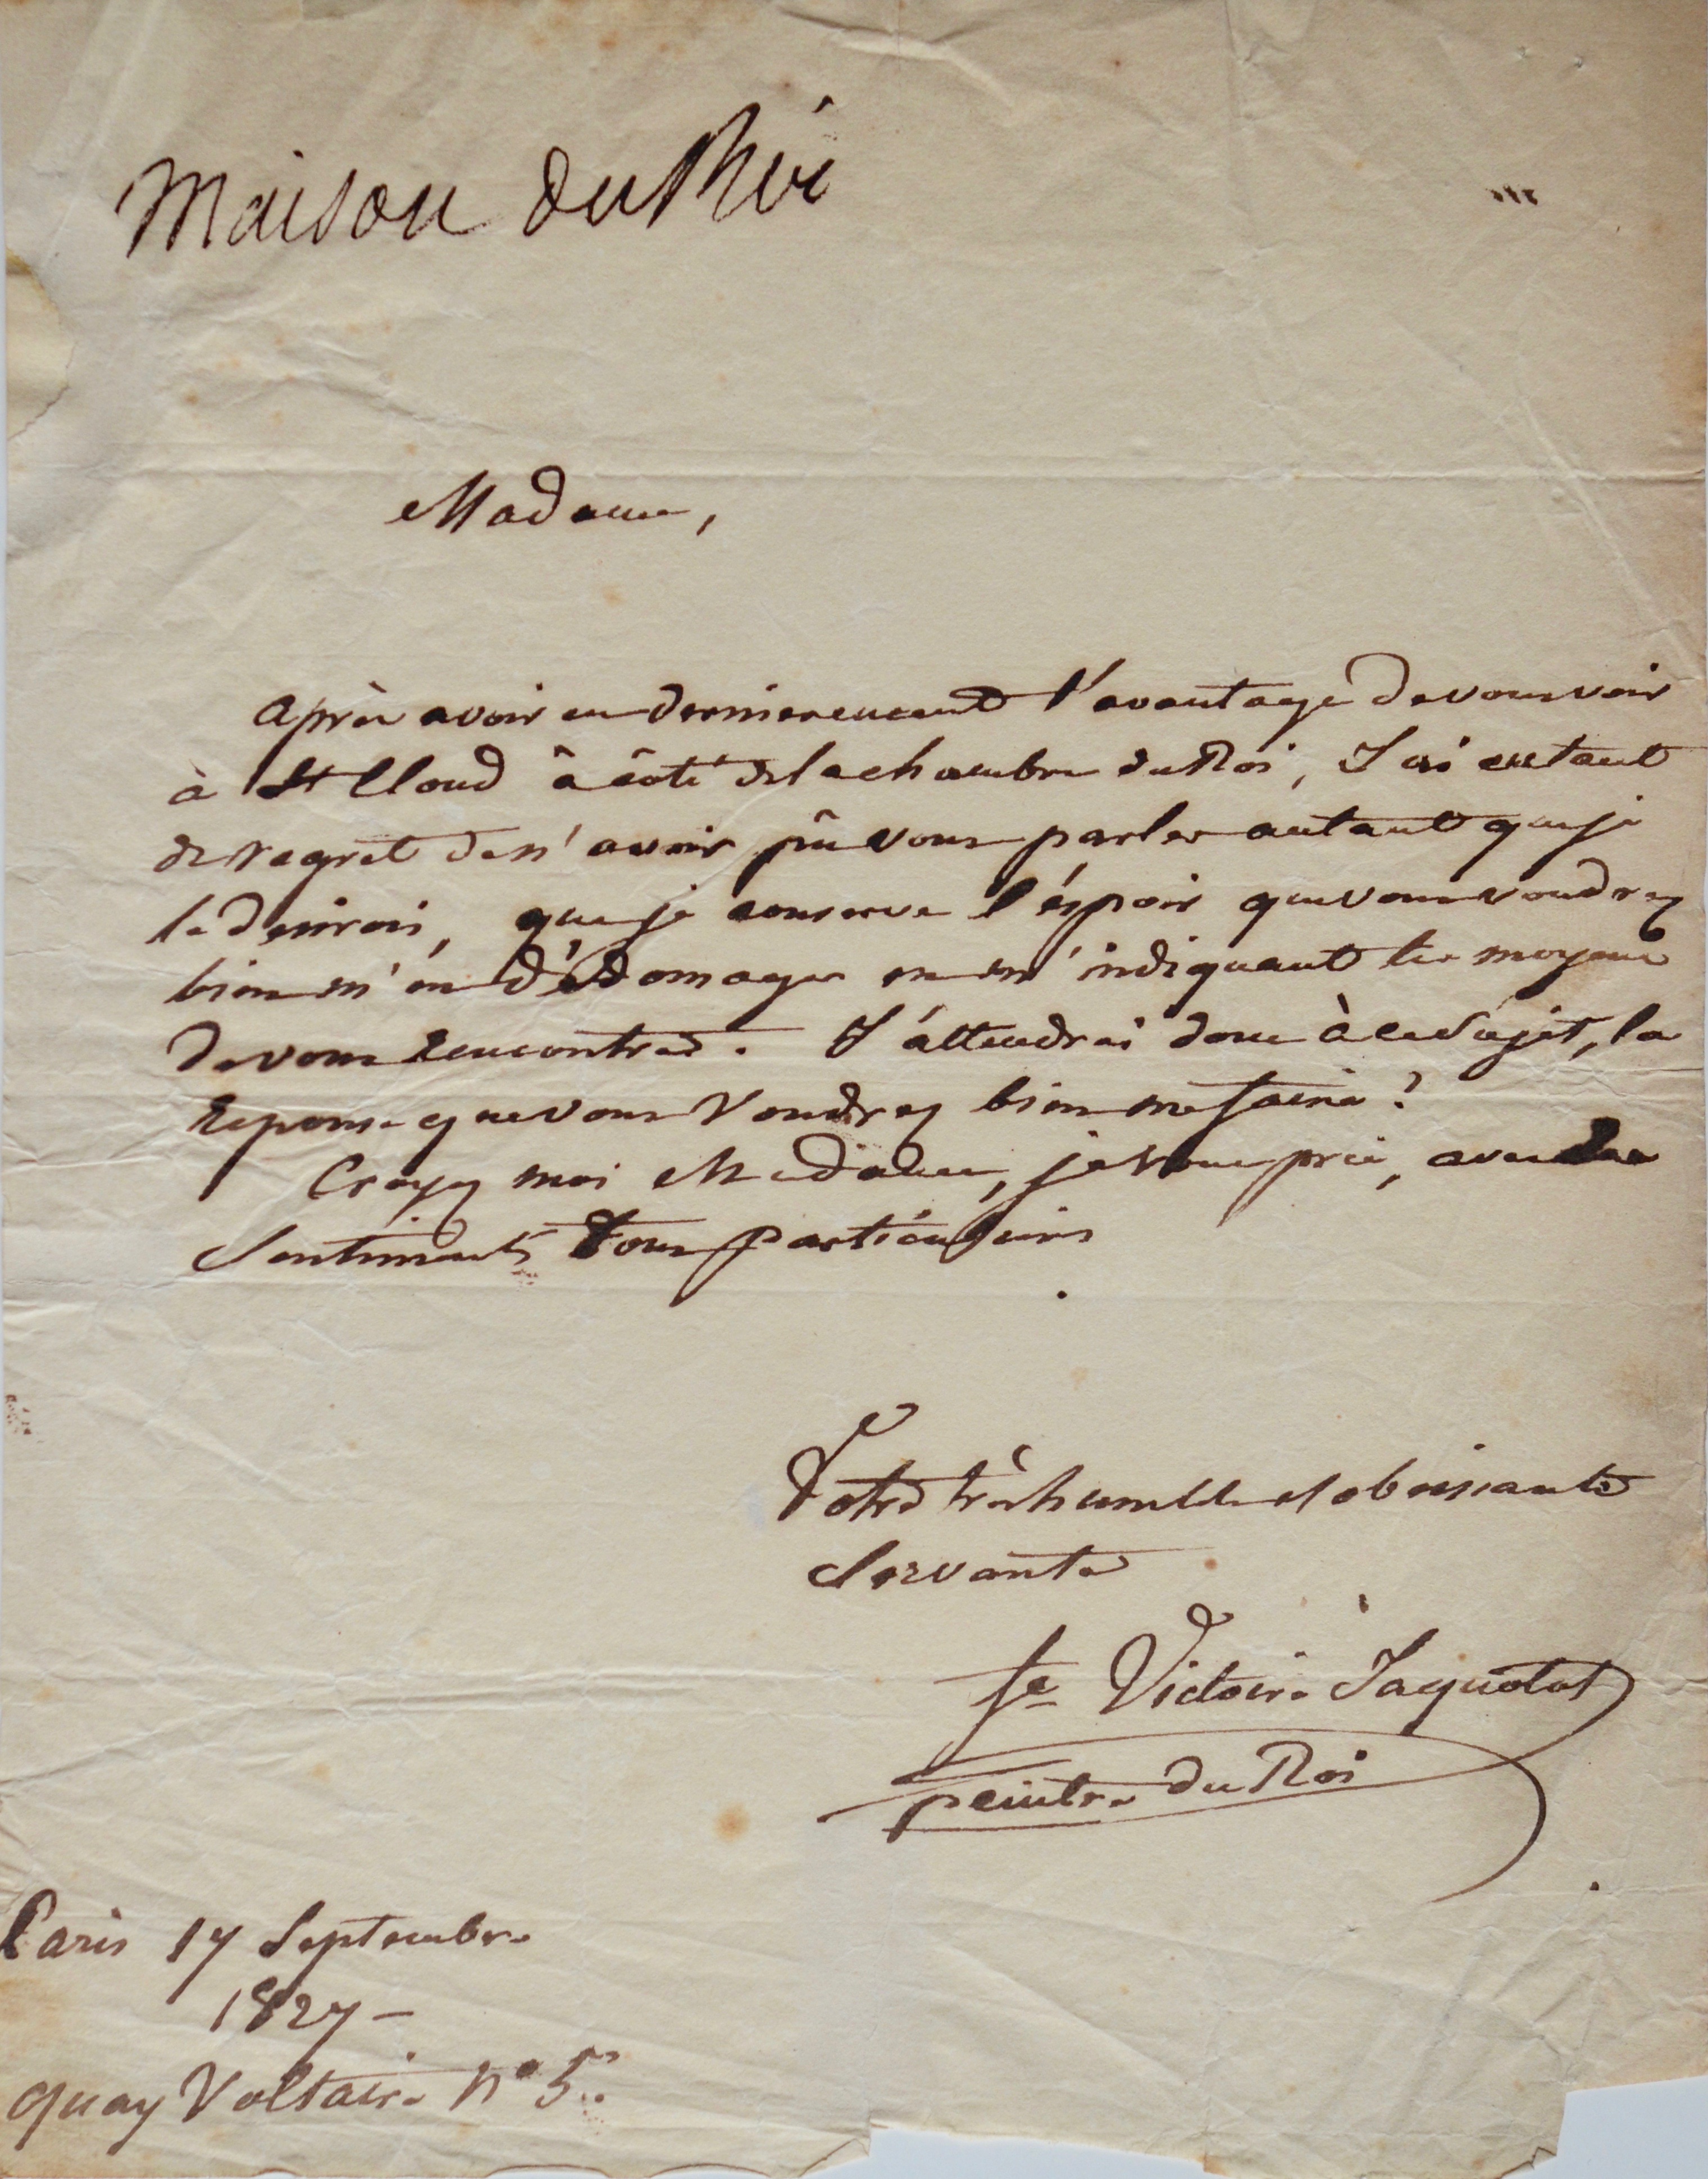 Maison du Roi
Madame,
après avoir eu dernierement l'avantage de vous voir
à St Cloud à côté de la chambre du Roi, J'ai eu tant
de regret de n'avoir pû vous parler autant que je
le desirois, que je conserve l'éspoir que vous voudrez
bien m'en dédomager en m'indiquant les moyens
de vous rencontrer. J'attendrai donc à ce sujet, la
reponse que vous voudrez bien me faire?
Croyez moi Madame, je vous prie, avec des
Sentiments tous particuliers
Votre très humble et obeissante
Servante
fe Victoire Jaquotot
peintre du Roi
Paris 17 Septembre
1827 –
quay Voltaire n° 5.